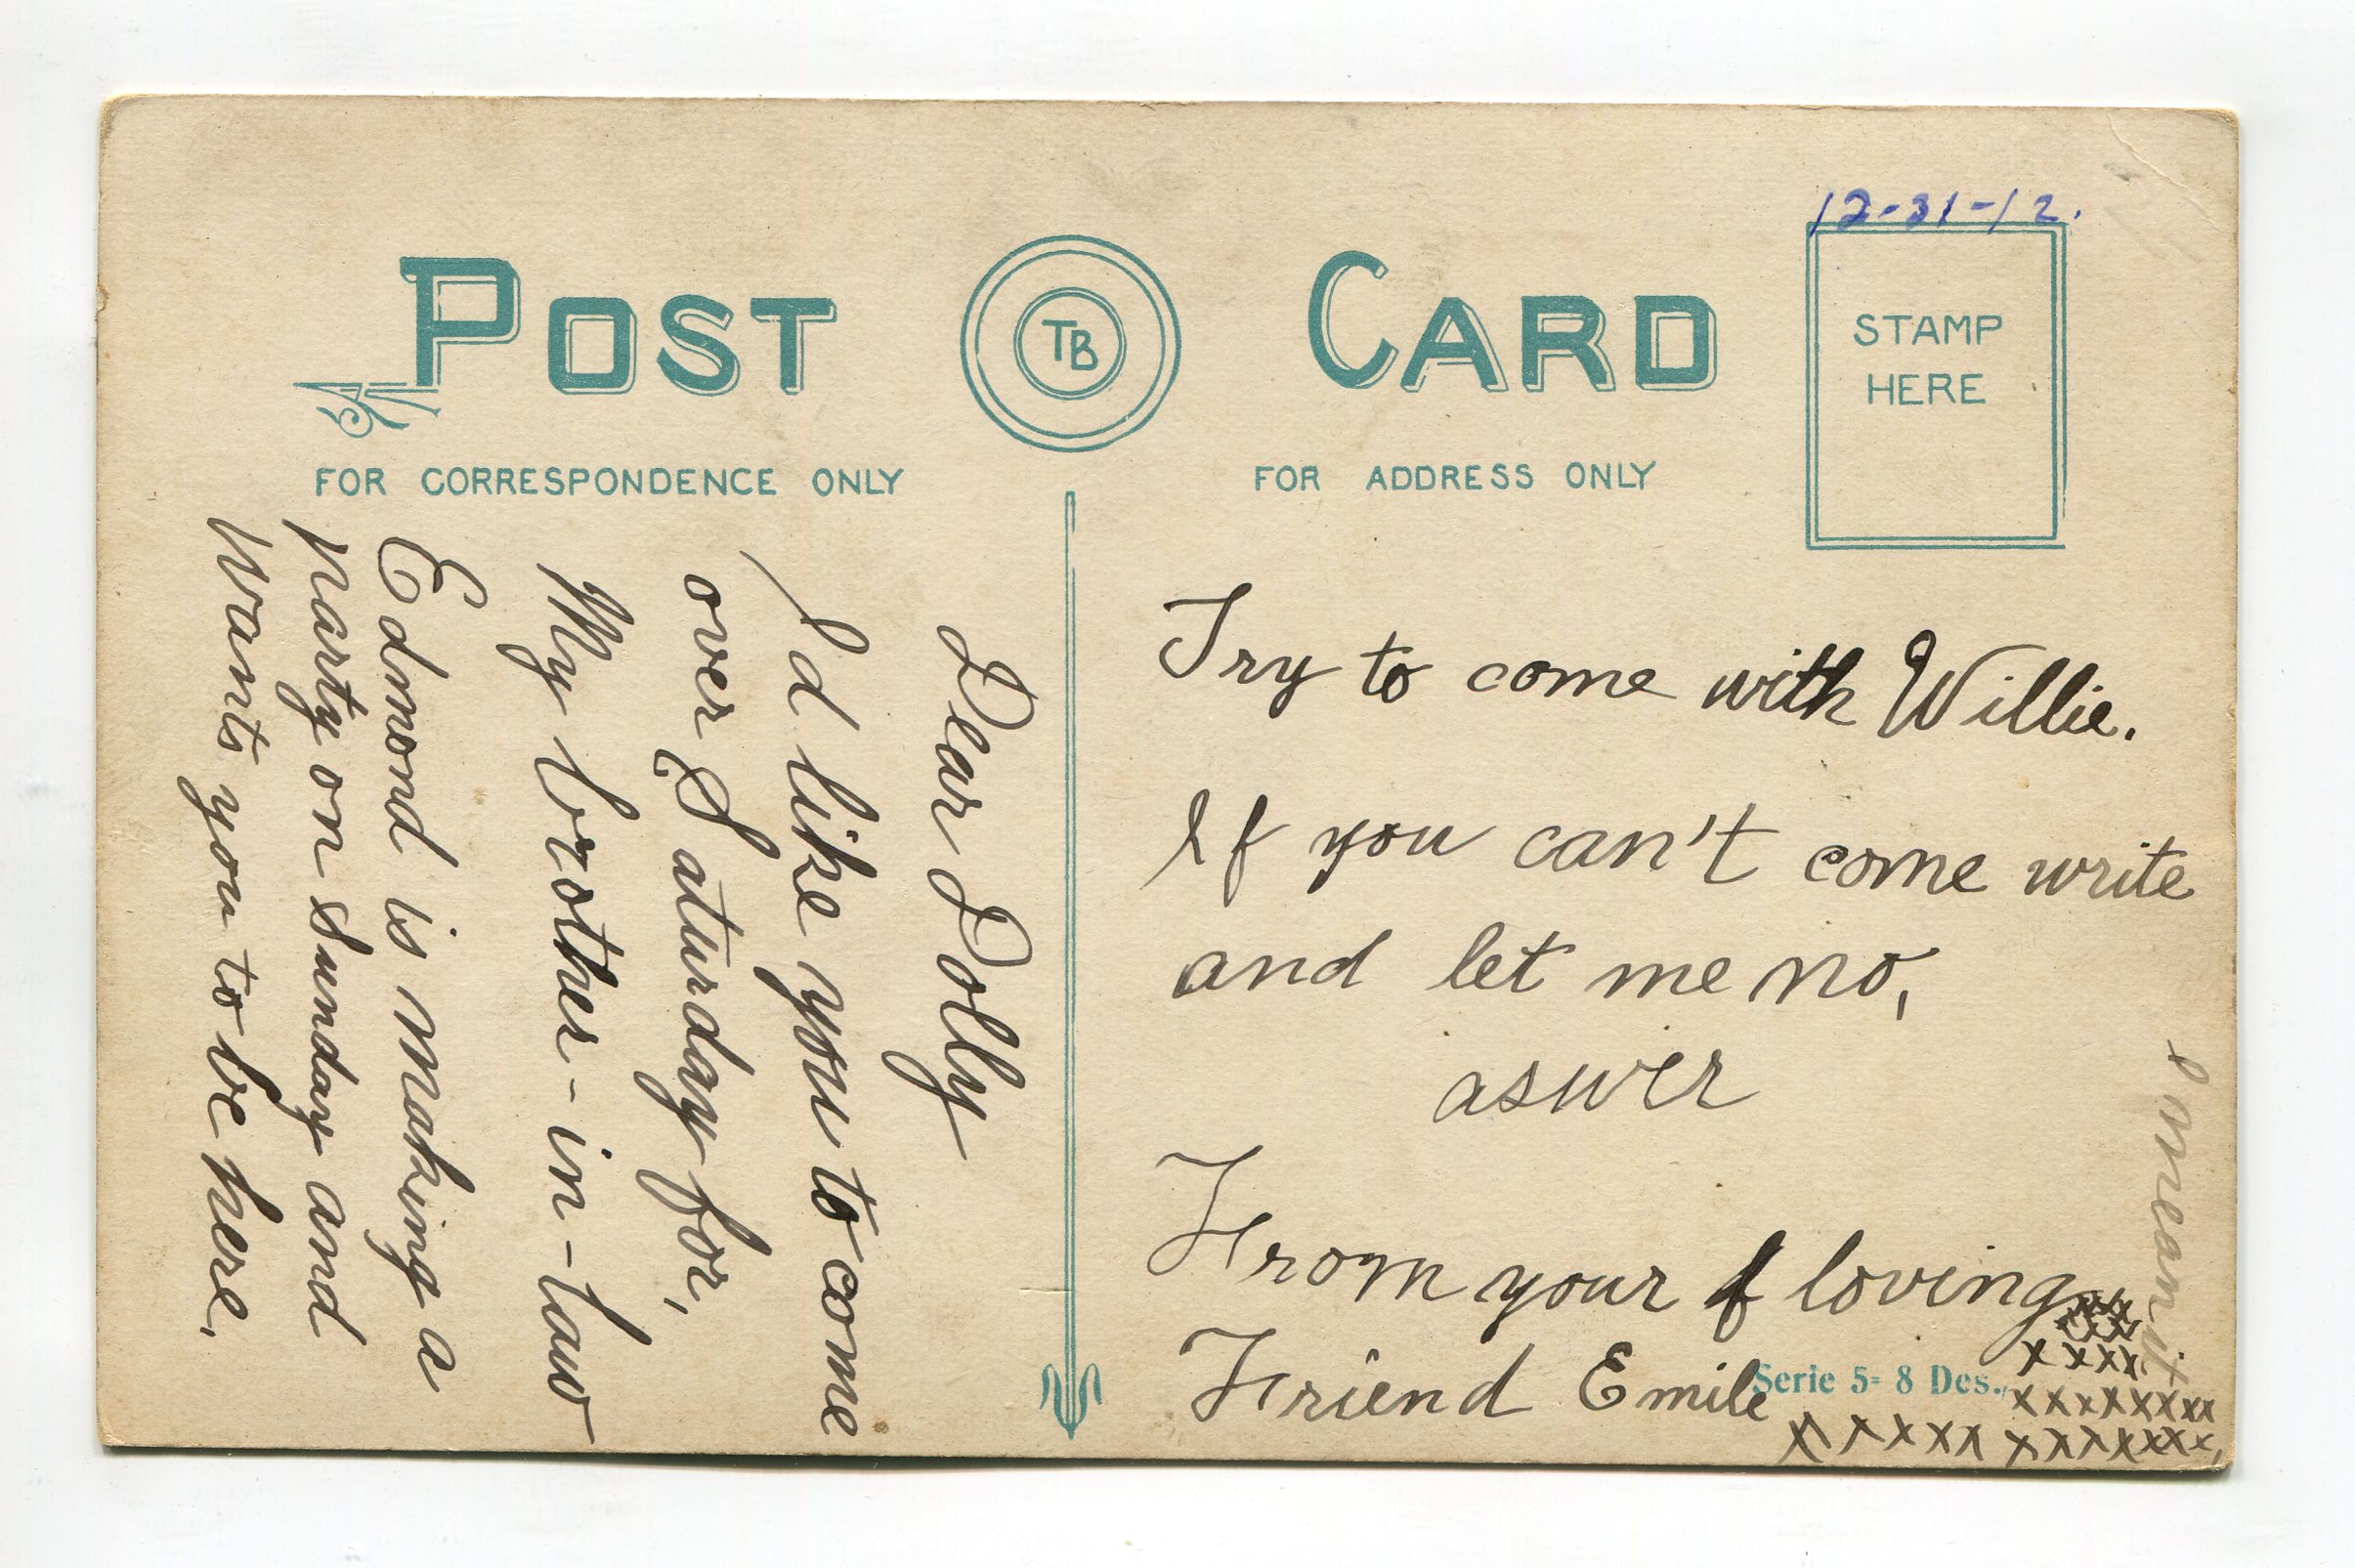 POST CARD
TB
12-31-12.
STAMP
HERE
FOR CORRESPONDENCE ONLY
FOR ADDRESS ONLY
Dear Dolly
Id like you to come
over Saturday for,
My brother-in-law
Edmond is making a
party on Sunday and
wants you to be here.
Try to come with Willie.
If you can't come write
and let me no,
aswer
From your f loving
Friend Emile
Serie 5-8 Des.
xxx
xxx
xxxx
xxxxxxxx
xxxxx xxxxxxx
I mean it